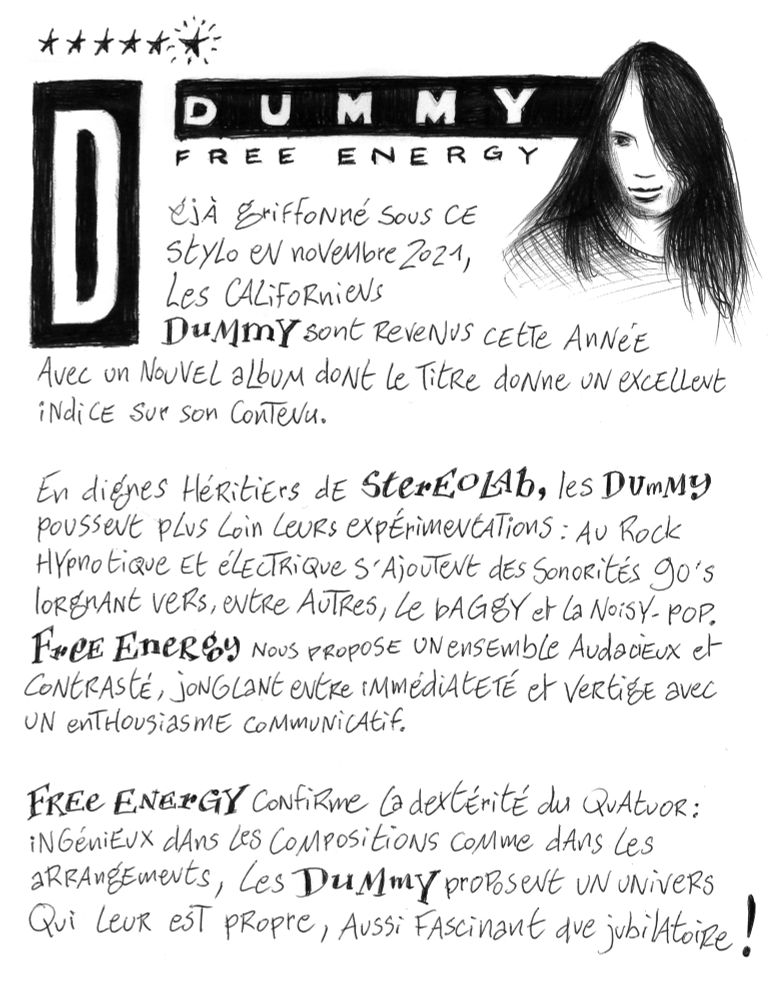 DUMMY
FREE ENERGY
Déjà griffonné sous ce
stylo en novembre 2021,
les Californiens
Dummy sont revenus cette année
avec un nouvel album dont le titre donne un excellent
indice sur son contenu.
En dignes héritiers de Stereolab, les Dummy
poussent plus loin leurs expérimentations : au rock
hypnotique et électrique s'ajoutent des sonorités 90's
lorgnant vers, entre autres, le baggy et la noisy-pop.
Free Energy nous propose un ensemble audacieux et
contrasté, jonglant entre immédiateté et vertige avec
un enthousiasme communicatif.
Free Energy confirme la dextérité du quatuor :
ingénieux dans les compositions comme dans les
arrangements, les Dummy proposent un univers
qui leur est propre, aussi fascinant que jubilatoire !